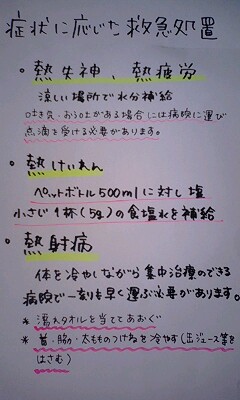 症状に応じた救急処置
• 熱失神、熱疲労
涼しい場所で水分補給
吐き気・おう吐がある場合には病院に運び
点滴を受ける必要があります。
• 熱けいれん
ペットボトル500mlに対し塩
小さじ1杯(5g)の食塩水を補給
• 熱射病
体を冷やしながら集中治療のできる
病院で一刻も早く運ぶ必要があります。
* 濡れタオルを当ててあおぐ
* 首・脇の・太もものつけねを冷やす(缶ジュース等を
はさむ)